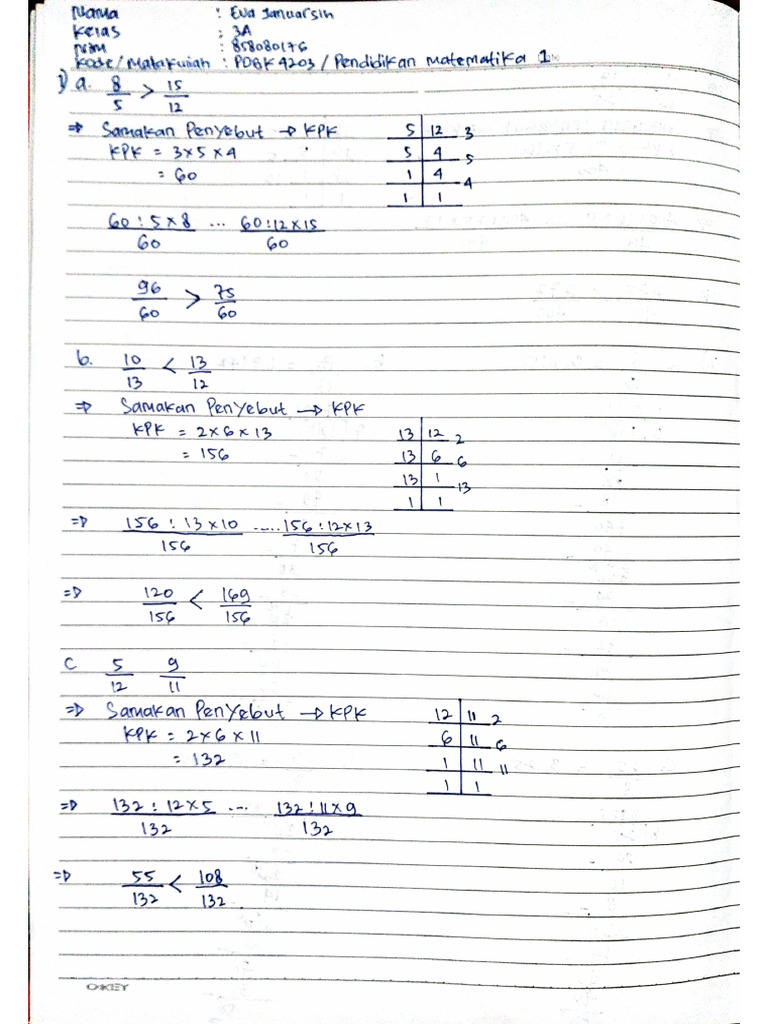 Nama : Eva Januarsih
Kelas : 3A
Nim : 858080176
Kode/Matakuliah : PDGK4203/Pendidikan Matematika 1
1) a. 8/5 > 15/12
⇒ Samakan Penyebut → KPK
KPK = 3×5×4
= 60
5 | 12 3
5 | 4 5
1 | 4 4
1 | 1
60:5×8/60 ... 60:12×15/60
96/60 > 75/60
b. 10/13 < 13/12
⇒ Samakan Penyebut → KPK
KPK = 2×6×13
= 156
13 | 12 2
13 | 6 6
13 | 1 13
1 | 1
⇒ 156:13×10/156 ..... 156:12×13/156
⇒ 120/156 < 169/156
c 5/12 9/11
⇒ Samakan Penyebut → KPK
KPK = 2×6×11
= 132
12 | 11 2
6 | 11 6
1 | 11 11
1 | 1
⇒ 132:12×5/132 ... 132:11×9/132
⇒ 55/132 < 108/132
OKEY